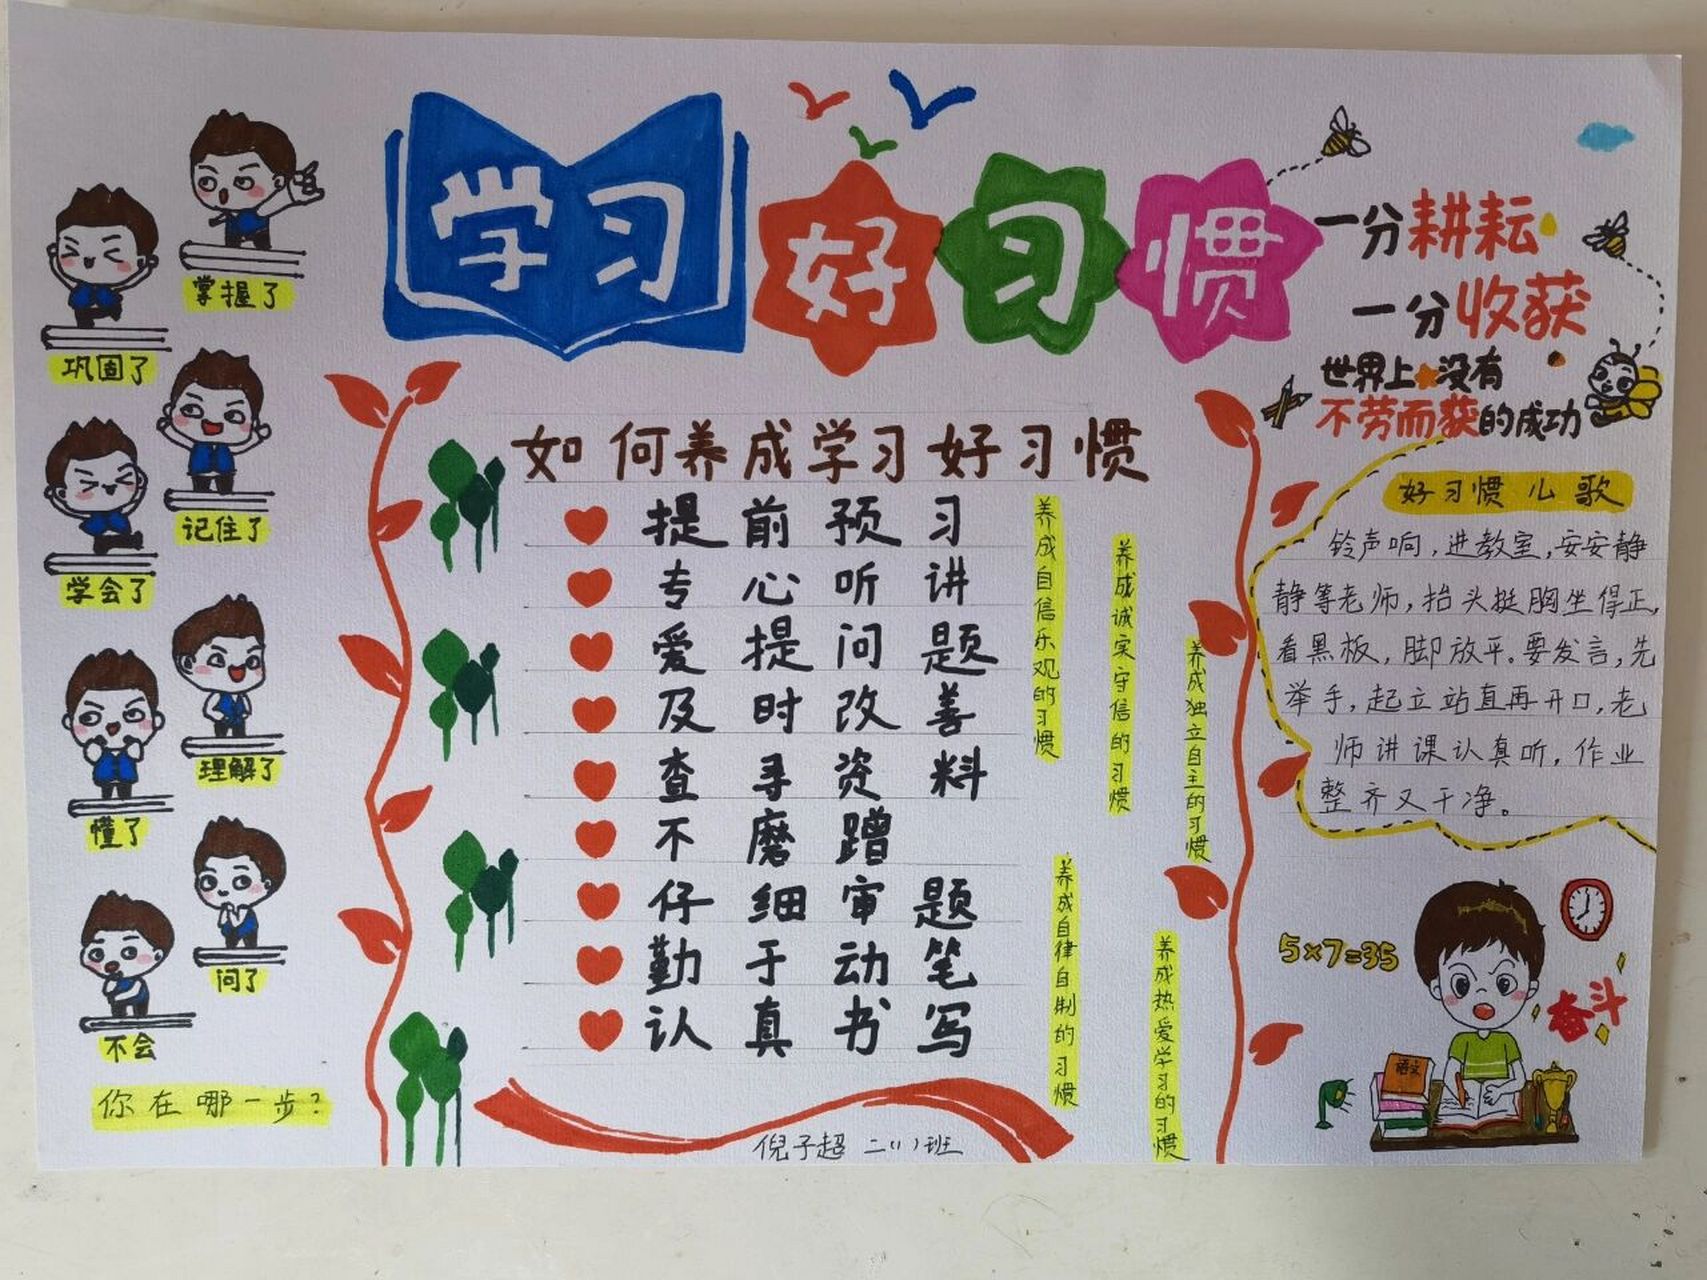 学习好习惯
一分耕耘
一分收获
世界上没有
不劳而获的成功
掌握了
巩固了
记住了
学会了
理解了
懂了
问了
不会
你在哪一步?
如何养成学习好习惯
提前预习
专心听讲
爱提问题
及时改善
查寻资料
不磨蹭
仔细审题
勤于动笔
认真书写
养成自信乐观的习惯
养成诚实守信的习惯
养成独立自主的习惯
养成自律自制的习惯
养成热爱学习的习惯
倪子超 二(1)班
好习惯儿歌
铃声响,进教室,安安静
静等老师,抬头挺胸坐得正,
看黑板,脚放平。要发言,先
举手,起立站直再开口,老
师讲课认真听,作业
整齐又干净。
5×7=35
奋斗
语文